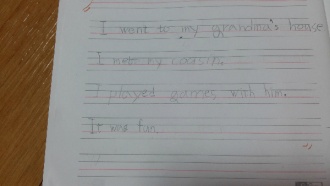 I went to my grandma's house
I met my cousin.
I played games with him.
It was fun.